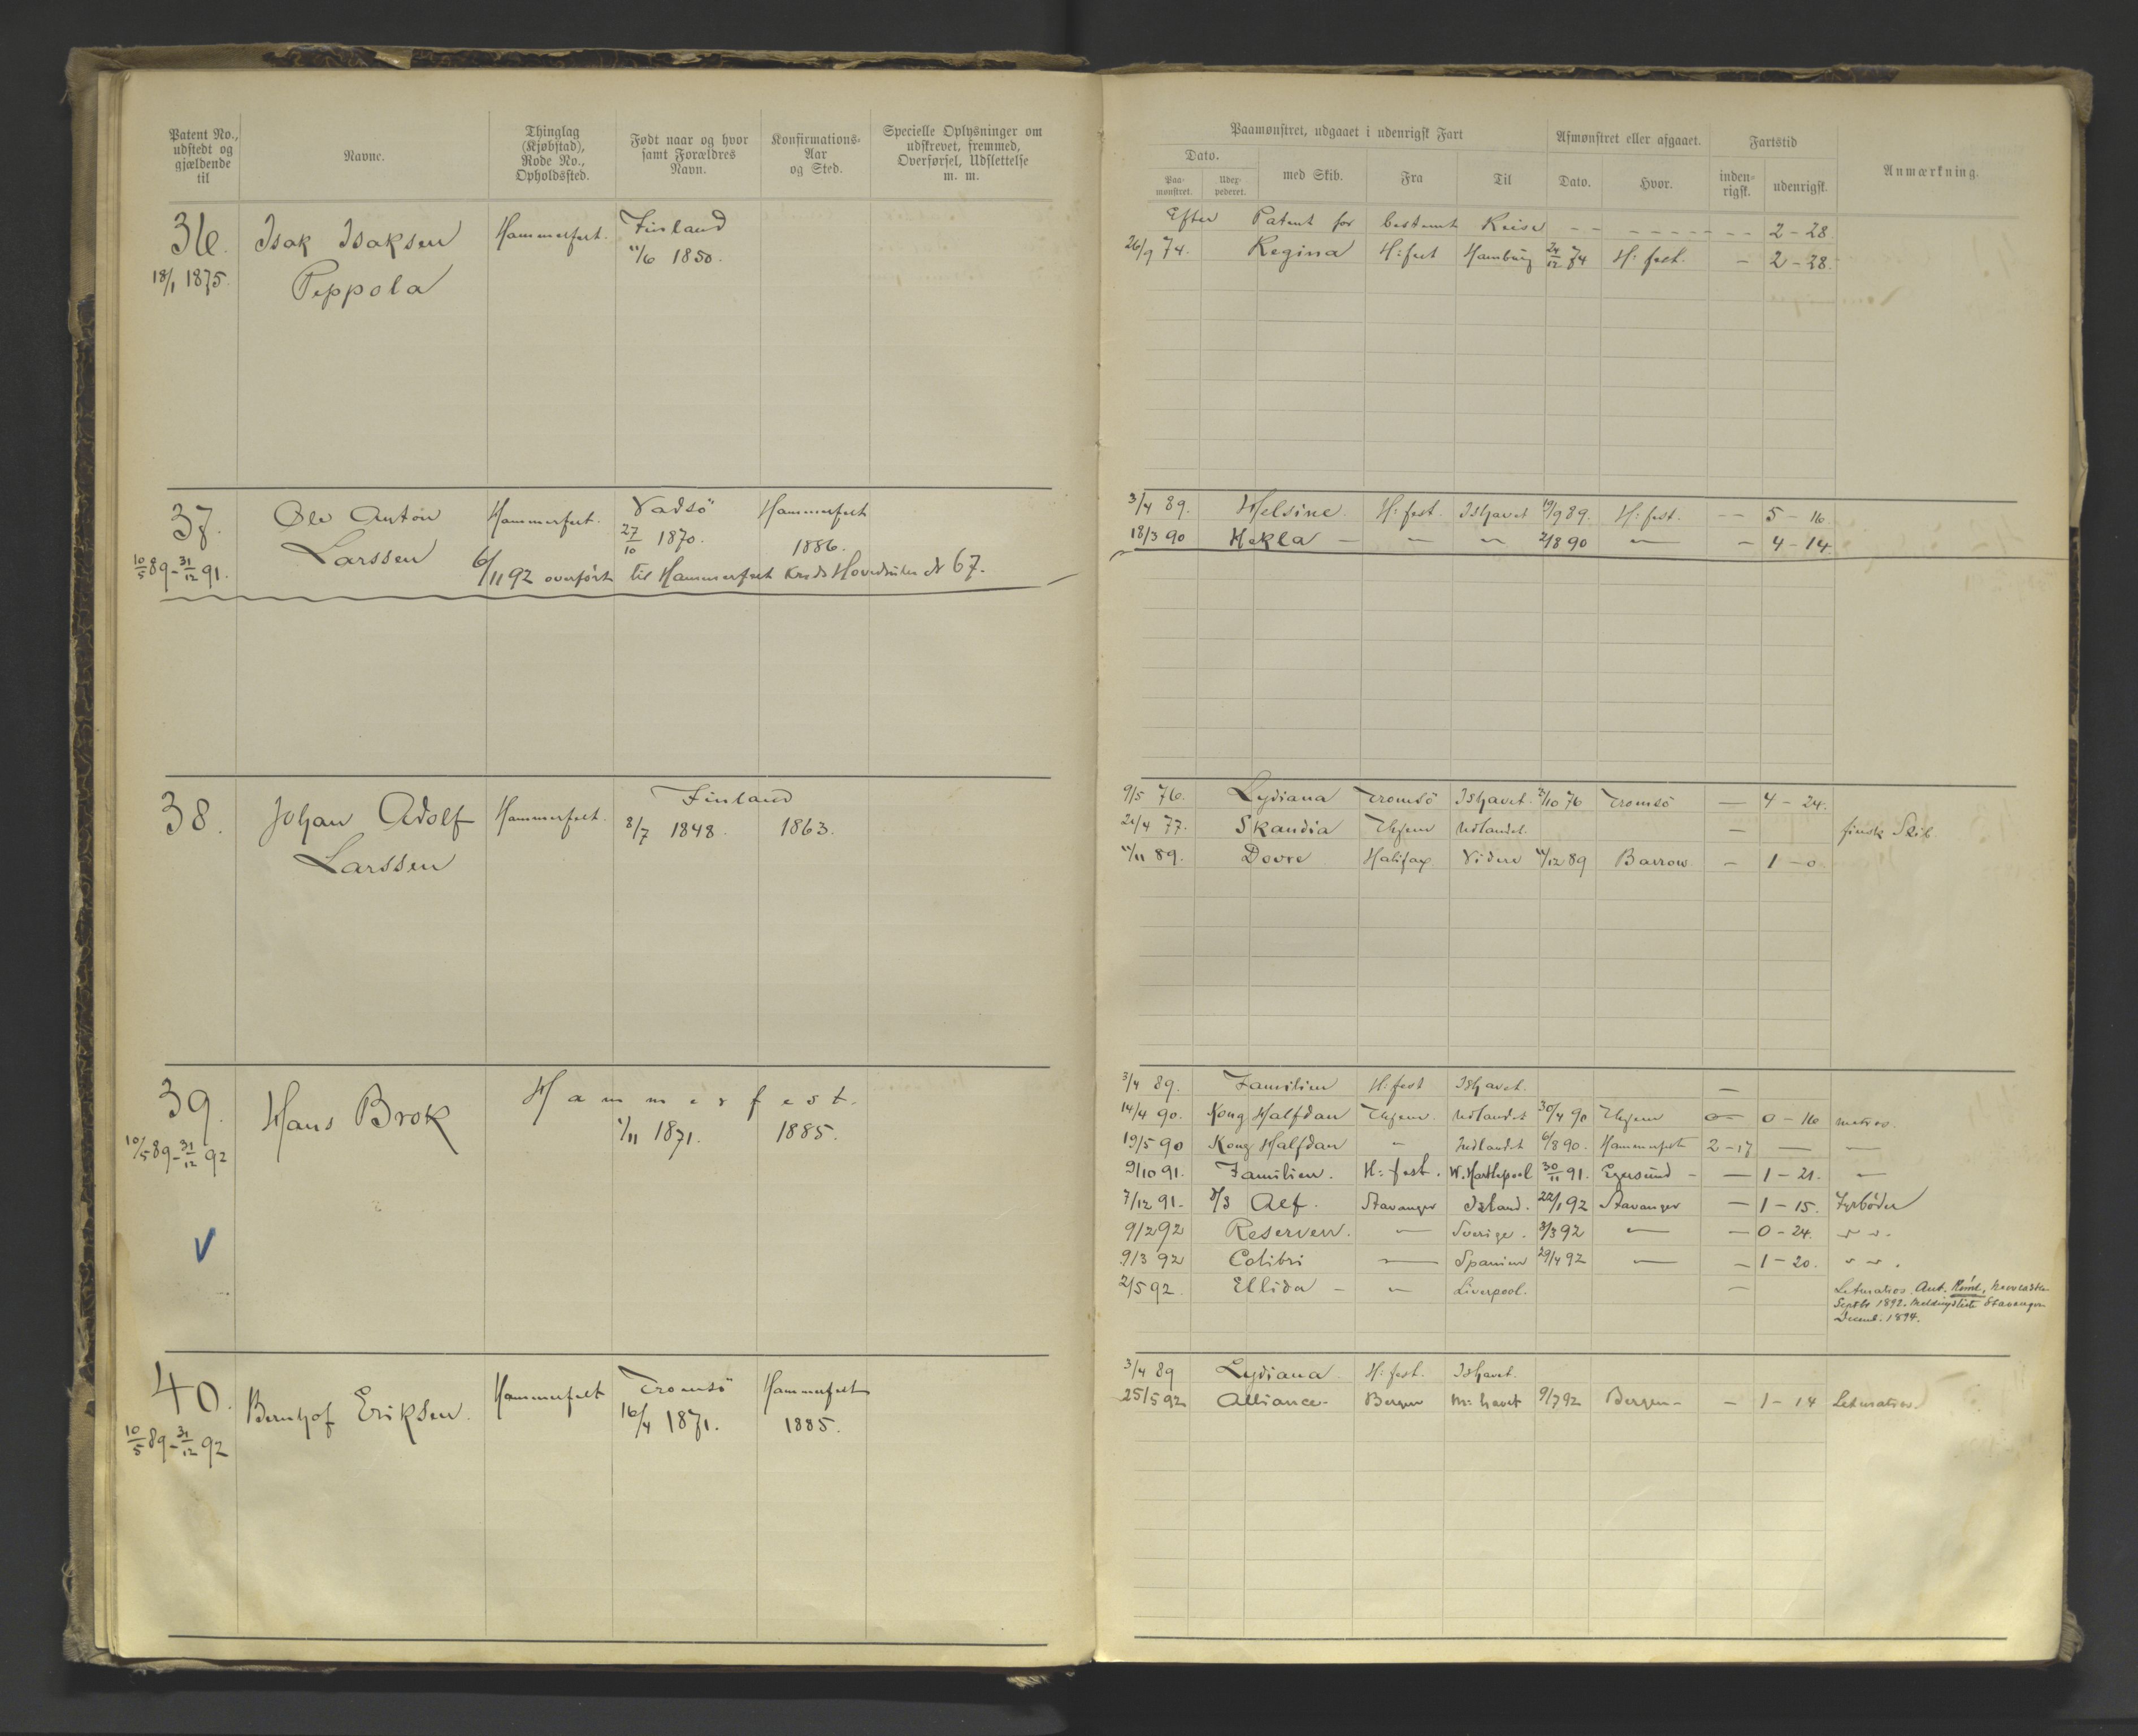 Patent No., udstedt og gjældende til
Navne.
Thinglag (Kjøbstad), Rode No., Opholdssted.
Født naar og hvor samt Forældres Navn.
Konfirmations-Aar og Sted.
Specielle Oplysninger om udskrevet, fremmed, Overførsel, Udslettelse m. m.
36. Isak Isaksen Hammerfest. Finland
18/1 1875. Peppola 11/6 1850.
37. Ole Anton Hammerfest. Vadsö Hammerfest
10/5 89-31/12 91. Larssen 27/10 1870. 1886.
6/11 92 overført til Hammerfest Kreds Hovedrulle No 67.
38. Johan Adolf Hammerfest. Finland
Larssen 8/7 1848. 1863.
39. Hans Brok Hammerfest.
10/5 89-31/12 92 1/11 1871. 1885.
V
40. Bernhof Eriksen. Hammerfest Tromsö Hammerfest
10/5 89-31/12 92 16/4 1871. 1885.
Paamønstret, udgaaet i udenrigsk Fart
Afmønstret eller afgaaet.
Fartstid
Anmærkning.
Dato.
Paa-mønstret.
Udex-pederet.
med Skib.
Fra
Til
Dato.
Hvor.
inden-rigsk.
udenrigsk.
Efter Patent for bestemt Reise - - - - - - - - 2-28.
26/9 74. Regina H:fest Hamburg 24/12 74 H:fest. - 2-28.
3/4 89. Helsine. H:fest. Ishavet 19/9 89. H:fest. - - 5-16.
18/3 90 Hekla - - - 2/8 90 - - 4-14
9/5 76. Lydiana Tromsö Ishavet. 2/10 76 Tromsö - 4-24.
21/4 77. Skandia Thjem Udlandet. - finsk Skib
11/11 89. Dovre Halifax Videre 11/12 89 Barrow - 1-0
3/4 89. Familien H:fest Ishavet. -
14/4 90. Kong Halfdan Thjem. Udlandet 30/4 90 Thjem - 0-16 matros.
19/5 90 Kong Halfdan - Udlandet 6/8 90. Hammerfest 2-17 - -
9/10 91. Familien. H:fest. W. Hartlepool 30/11 91. Egersund - - 1-21. -
7/12 91. S/S Alf. Stavanger Island. 22/1 92 Stavanger - 1-15. Fyrböder
9/2 92 Reserven. - Sverige. 3/3 92 - - 0-24. " ".
9/3 92 Colibri - Spanien 29/4 92 - - 1-20. " ".
2/5 92. Ellida - - Liverpool. - Letmatros. Ant. Rømt, Newcastle
Septbr 1892. Meldingsliste Stavanger
Decemb. 1894.
3/4 89 Lydiana H:fest. Ishavet.
25/5 92 Alliance- Bergen M:havet 9/7 92 Bergen- - 1-14 Letmatros.